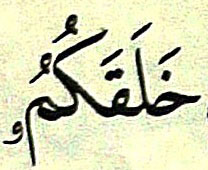 خَلَقَكُمُۥ